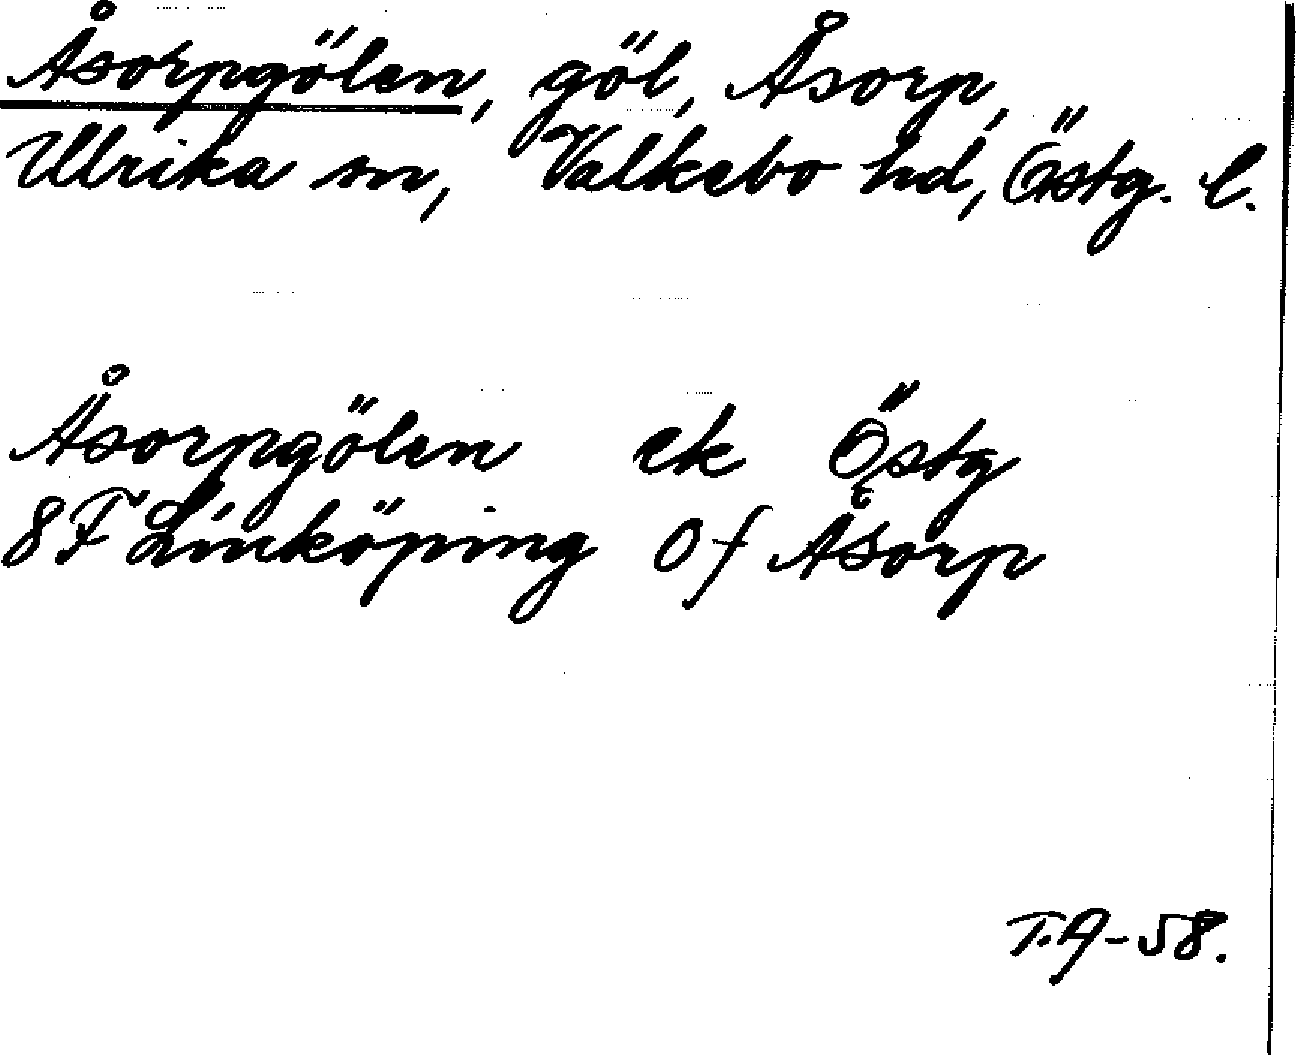 Åsorpgölen, göl, Åsorp,
Ulrika sn, Valkebo hd, Östg. l.
Åsorpgölen ek Östg
8F Linköping 0f Åsorp
T.A-58.